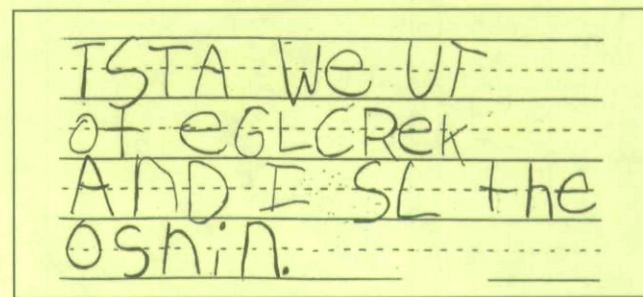 TSTA We UT
ot eGLCRek
AND I SL the
OShin.